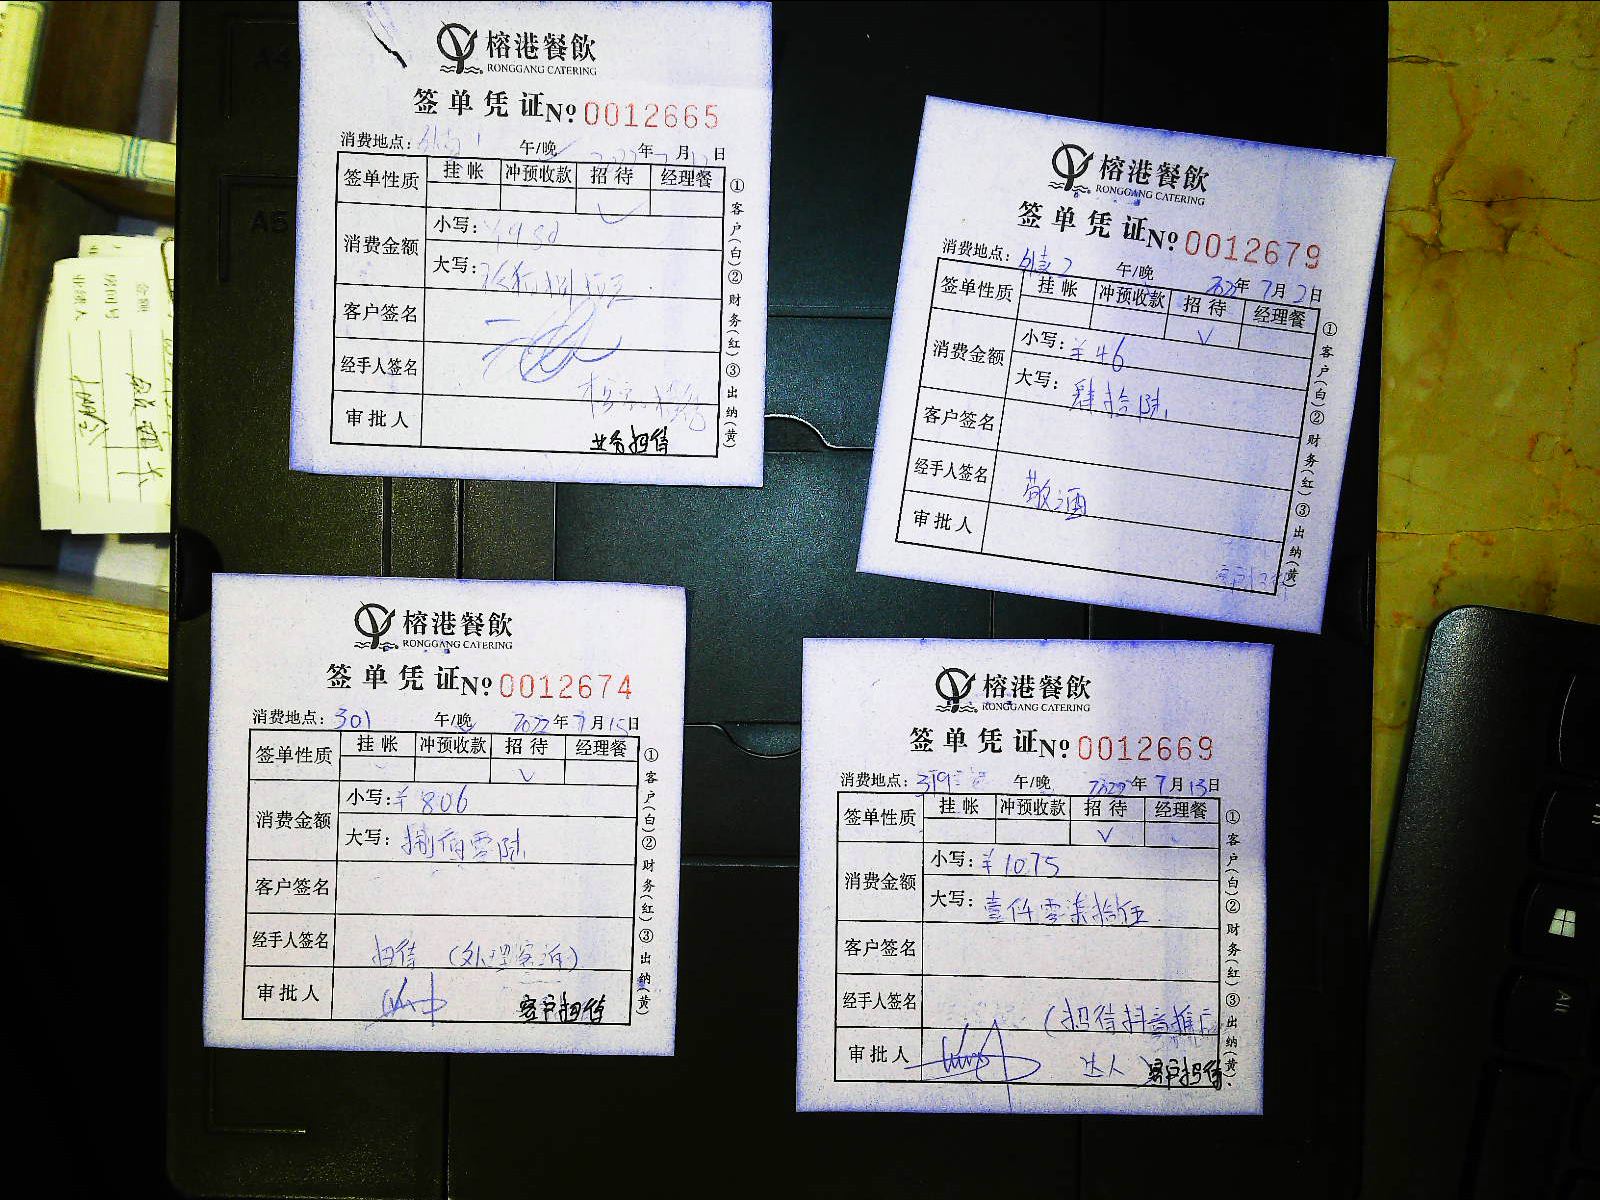 榕港餐飲
RONGGANG CATERING
签单凭证 No 0012665
消费地点: 午/晚 2022年7月12日
签单性质 挂帐 冲预收款 招待 经理餐
✓
消费金额 小写:
大写:
客户签名
经手人签名
审批人
业务招待
①客户(白)②财务(红)③出纳(黄)
榕港餐飲
RONGGANG CATERING
签单凭证 No 0012679
消费地点: 午/晚 2022年7月2日
签单性质 挂帐 冲预收款 招待 经理餐
✓
消费金额 小写:¥46
大写:肆拾陆
客户签名
经手人签名 敬酒
审批人
①客户(白)②财务(红)③出纳(黄)
榕港餐飲
RONGGANG CATERING
签单凭证 No 0012674
消费地点:301 午/晚 2022年7月15日
签单性质 挂帐 冲预收款 招待 经理餐
✓
消费金额 小写:¥806
大写:捌佰零陆
客户签名
经手人签名 招待(处理客诉)
审批人
客户招待
①客户(白)②财务(红)③出纳(黄)
榕港餐飲
RONGGANG CATERING
签单凭证 No 0012669
消费地点: 午/晚 2022年7月13日
签单性质 挂帐 冲预收款 招待 经理餐
✓
消费金额 小写:¥1075
大写:壹仟零柒拾伍
客户签名
经手人签名 (招待抖音推广
审批人 达人) 客户招待
①客户(白)②财务(红)③出纳(黄)
A4
A5
Alt